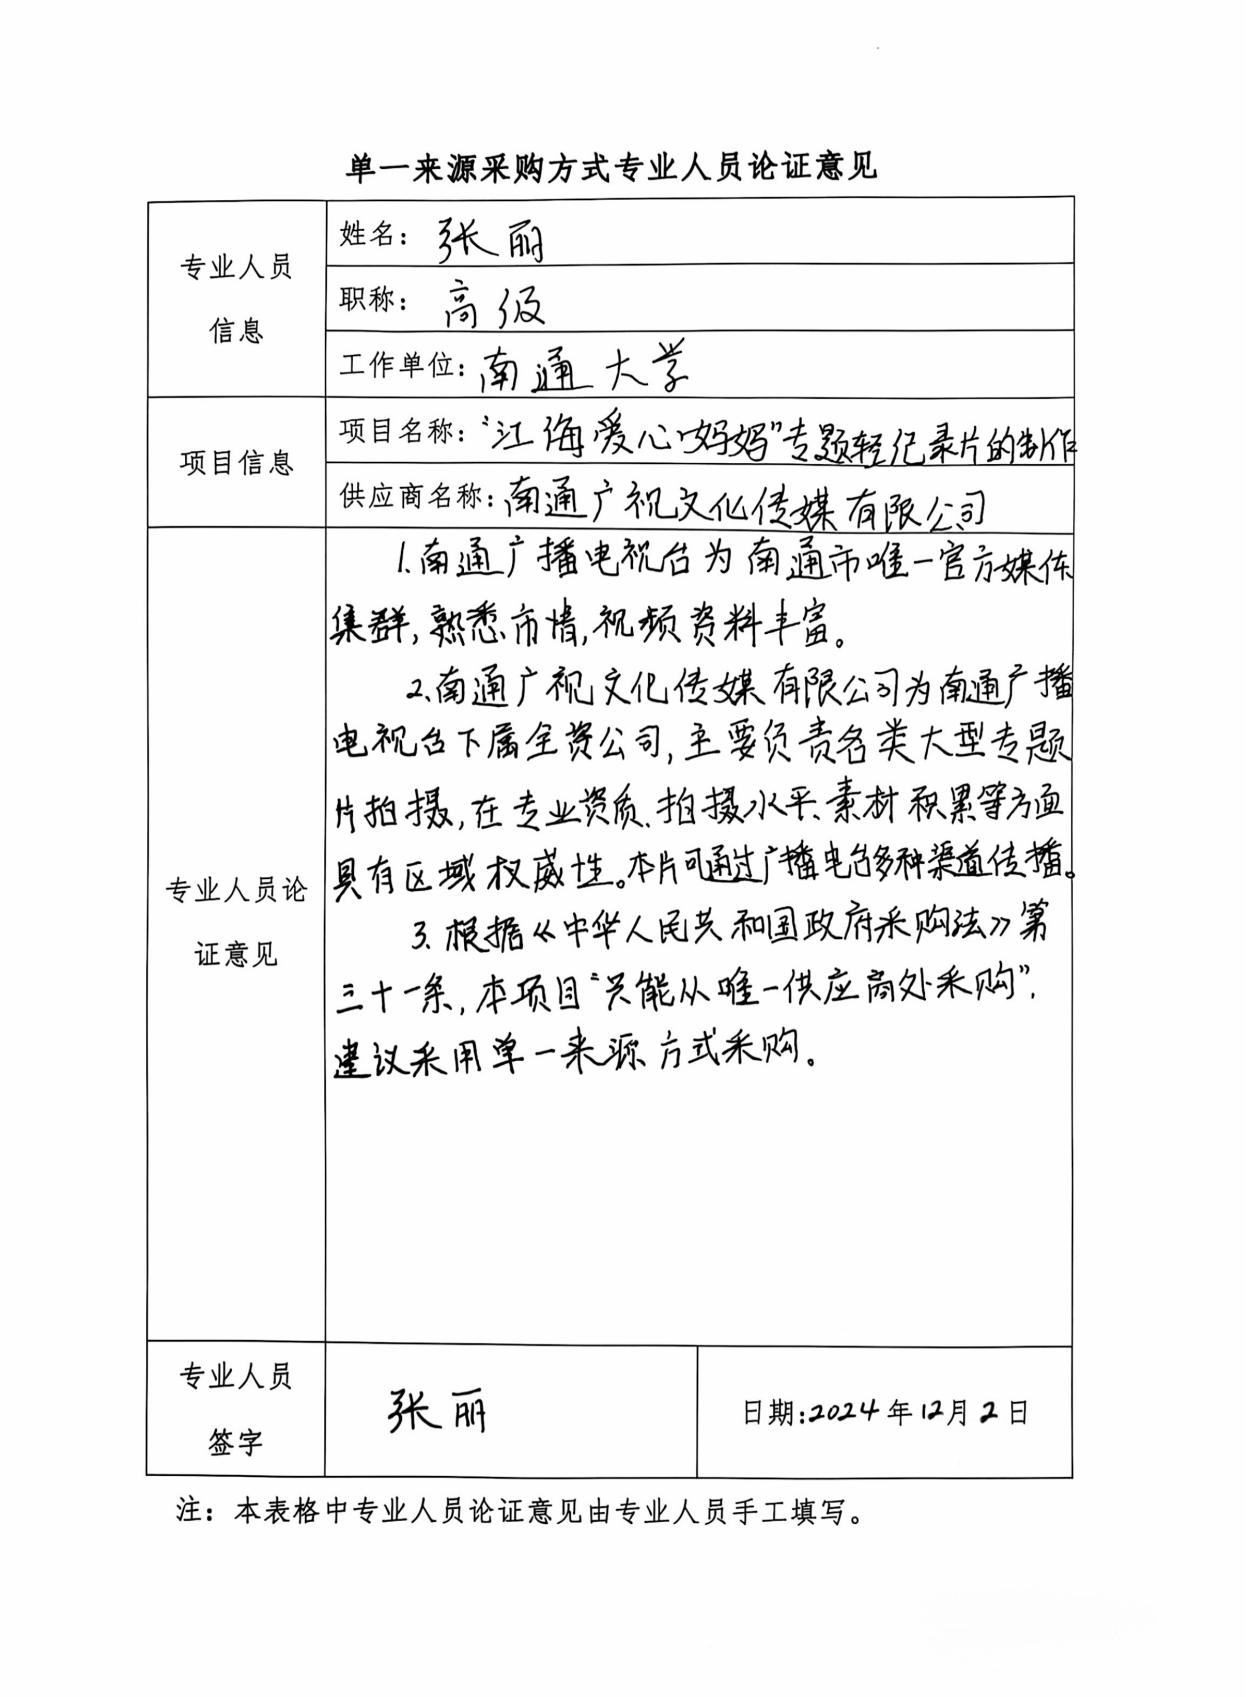 单一来源采购方式专业人员论证意见
专业人员
信息
姓名：张丽
职称：高级
工作单位：南通大学
项目信息
项目名称：“江海爱心妈妈”专题轻纪录片的制作
供应商名称：南通广视文化传媒有限公司
专业人员论
证意见
1.南通广播电视台为南通市唯一官方媒体
集群，熟悉市情，视频资料丰富。
2.南通广视文化传媒有限公司为南通广播
电视台下属全资公司，主要负责各类大型专题
片拍摄，在专业资质、拍摄水平、素材积累等方面
具有区域权威性。本片可通过广播电台多种渠道传播。
3.根据《中华人民共和国政府采购法》第
三十一条，本项目“只能从唯一供应商处采购”，
建议采用单一来源方式采购。
专业人员
签字
张丽
日期：2024年12月2日
注：本表格中专业人员论证意见由专业人员手工填写。